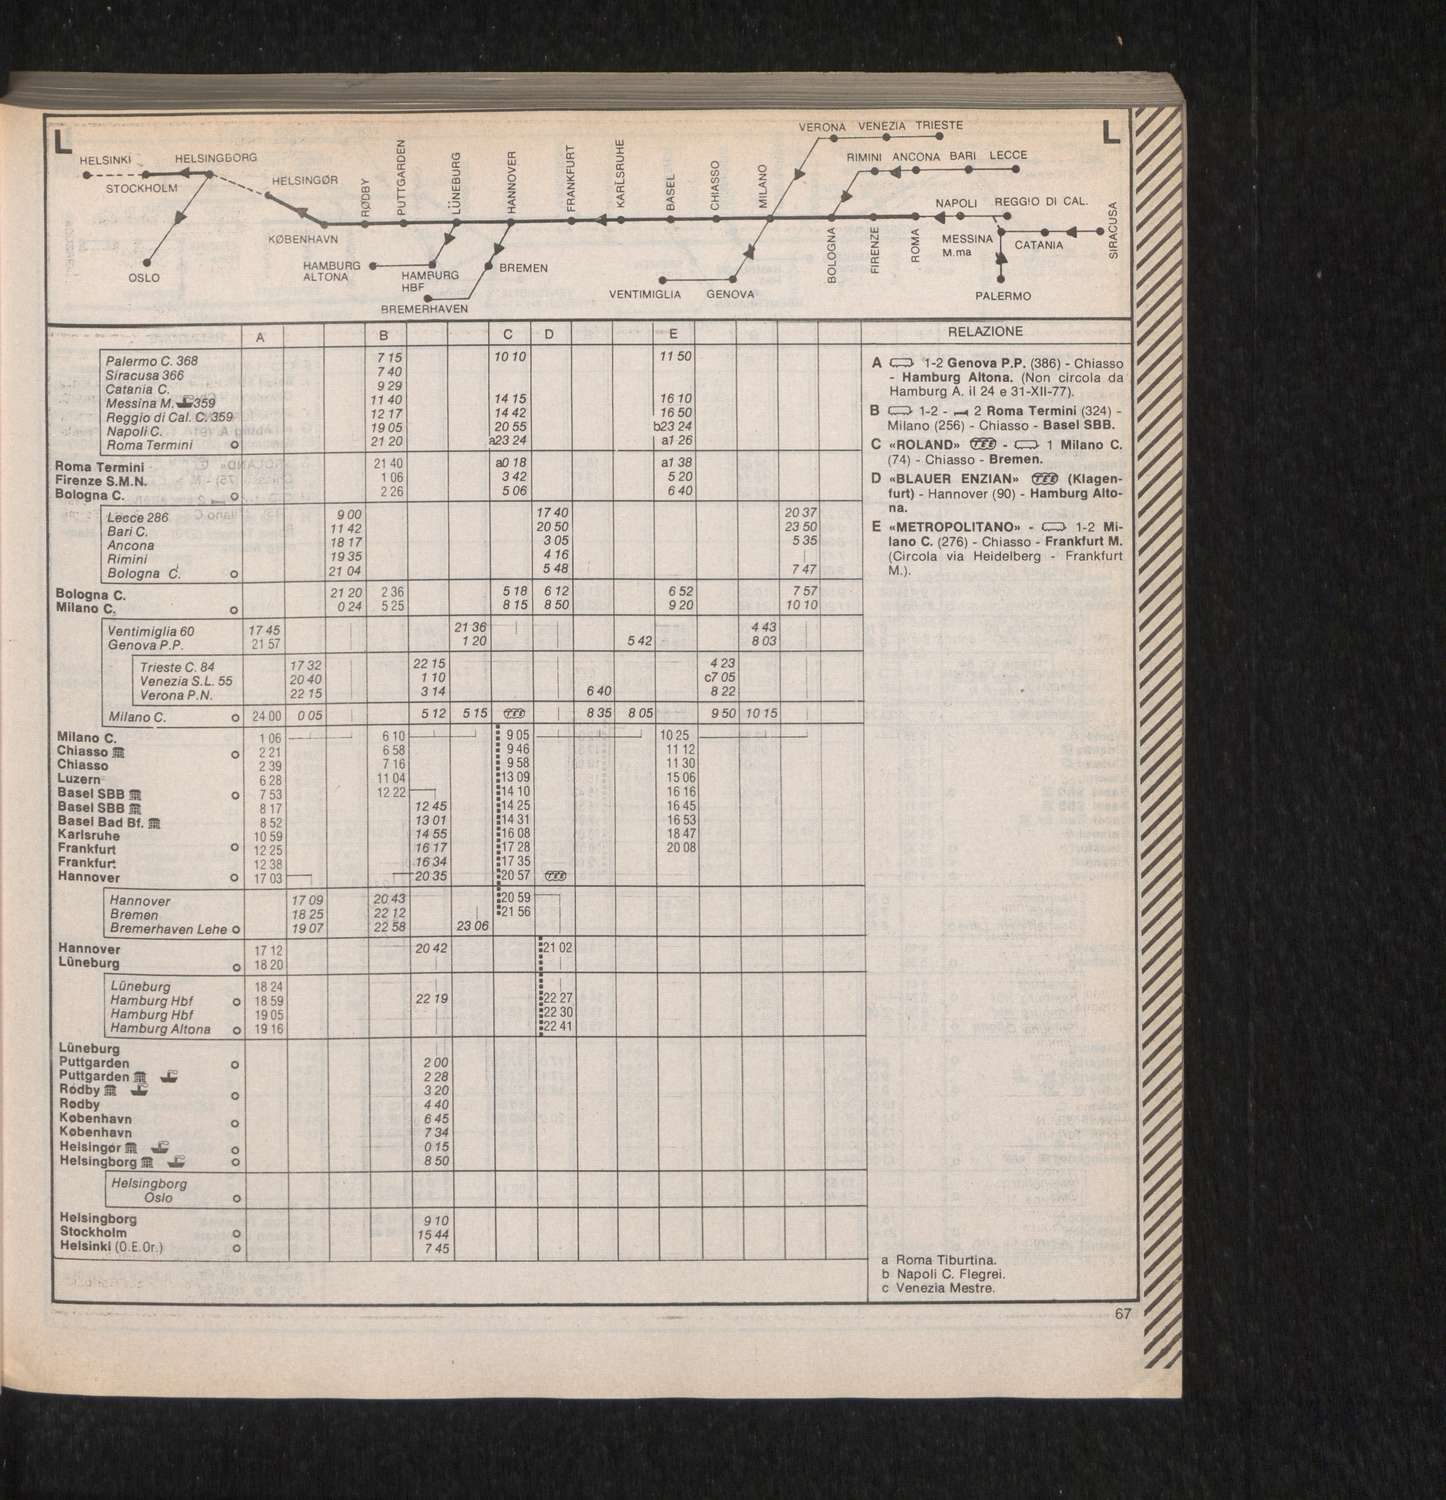 L
L
HELSINKI
HELSINGBORG
STOCKHOLM
HELSINGØR
KØBENHAVN
OSLO
RØDBY
PUTTGARDEN
LÜNEBURG
HANNOVER
FRANKFURT
KARLSRUHE
BASEL
CHIASSO
MILANO
VERONA VENEZIA TRIESTE
RIMINI ANCONA BARI LECCE
NAPOLI REGGIO DI CAL.
BOLOGNA
FIRENZE
ROMA
MESSINA M.ma
CATANIA
SIRACUSA
PALERMO
HAMBURG ALTONA
HAMBURG HBF
BREMEN
BREMERHAVEN
VENTIMIGLIA GENOVA
A B C D E RELAZIONE
Palermo C. 368 7 15 10 10 11 50
Siracusa 366 7 40
Catania C. 9 29
Messina M. 359 11 40 14 15 16 10
Reggio di Cal. C. 359 12 17 14 42 16 50
Napoli C. 19 05 20 55 b23 24
Roma Termini 21 20 a23 24 a1 26
Roma Termini 21 40 a0 18 a1 38
Firenze S.M.N. 1 06 3 42 5 20
Bologna C. 2 26 5 06 6 40
Lecce 286 9 00 17 40 20 37
Bari C. 11 42 20 50 23 50
Ancona 18 17 3 05 5 35
Rimini 19 35 4 16
Bologna C. 21 04 5 48 7 47
Bologna C. 21 20 2 36 5 18 6 12 6 52 7 57
Milano C. 0 24 5 25 8 15 8 50 9 20 10 10
Ventimiglia 60 17 45 21 36 4 43
Genova P.P. 21 57 1 20 5 42 8 03
Trieste C. 84 17 32 22 15 4 23
Venezia S.L. 55 20 40 1 10 c7 05
Verona P.N. 22 15 3 14 6 40 8 22
Milano C. 24 00 0 05 5 12 5 15 TEE 8 35 8 05 9 50 10 15
Milano C. 1 06 6 10 9 05 10 25
Chiasso 2 21 6 58 9 46 11 12
Chiasso 2 39 7 16 9 58 11 30
Luzern 6 28 11 04 13 09 15 06
Basel SBB 7 53 12 22 14 10 16 16
Basel SBB 8 17 12 45 14 25 16 45
Basel Bad Bf. 8 52 13 01 14 31 16 53
Karlsruhe 10 59 14 55 16 08 18 47
Frankfurt 12 25 16 17 17 28 20 08
Frankfurt 12 38 16 34 17 35
Hannover 17 03 20 35 20 57 TEE
Hannover 17 09 20 43 20 59
Bremen 18 25 22 12 21 56
Bremerhaven Lehe 19 07 22 58 23 06
Hannover 17 12 20 42 21 02
Lüneburg 18 20
Lüneburg 18 24
Hamburg Hbf 18 59 22 19 22 27
Hamburg Hbf 19 05 22 30
Hamburg Altona 19 16 22 41
Lüneburg
Puttgarden 2 00
Puttgarden 2 28
Rødby 3 20
Rødby 4 40
København 6 45
København 7 34
Helsingør 0 15
Helsingborg 8 50
Helsingborg
Oslo
Helsingborg 9 10
Stockholm 15 44
Helsinki (O.E.Or.) 7 45
A 1-2 Genova P.P. (386) - Chiasso
- Hamburg Altona. (Non circola da
Hamburg A. il 24 e 31-XII-77).
B 1-2 - 2 Roma Termini (324) -
Milano (256) - Chiasso - Basel SBB.
C «ROLAND» TEE - 1 Milano C.
(74) - Chiasso - Bremen.
D «BLAUER ENZIAN» TEE (Klagen-
furt) - Hannover (90) - Hamburg Alto-
na.
E «METROPOLITANO» - 1-2 Mi-
lano C. (276) - Chiasso - Frankfurt M.
(Circola via Heidelberg - Frankfurt
M.).
a Roma Tiburtina.
b Napoli C. Flegrei.
c Venezia Mestre.
67